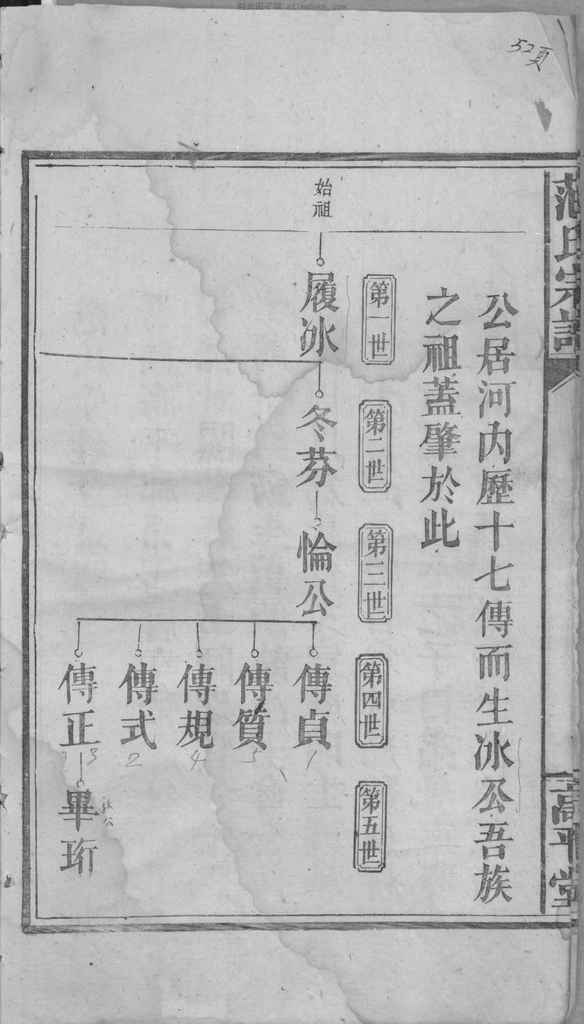 52頁
范氏宗譜
高平堂
公居河內歷十七傳而生冰公吾族
之祖蓋肇於此
第一世
第二世
第三世
第四世
第五世
始祖
履冰
冬芬
惀公
傳貞
1
傳質
5
傳規
4
傳式
2
傳正
3
畢珩